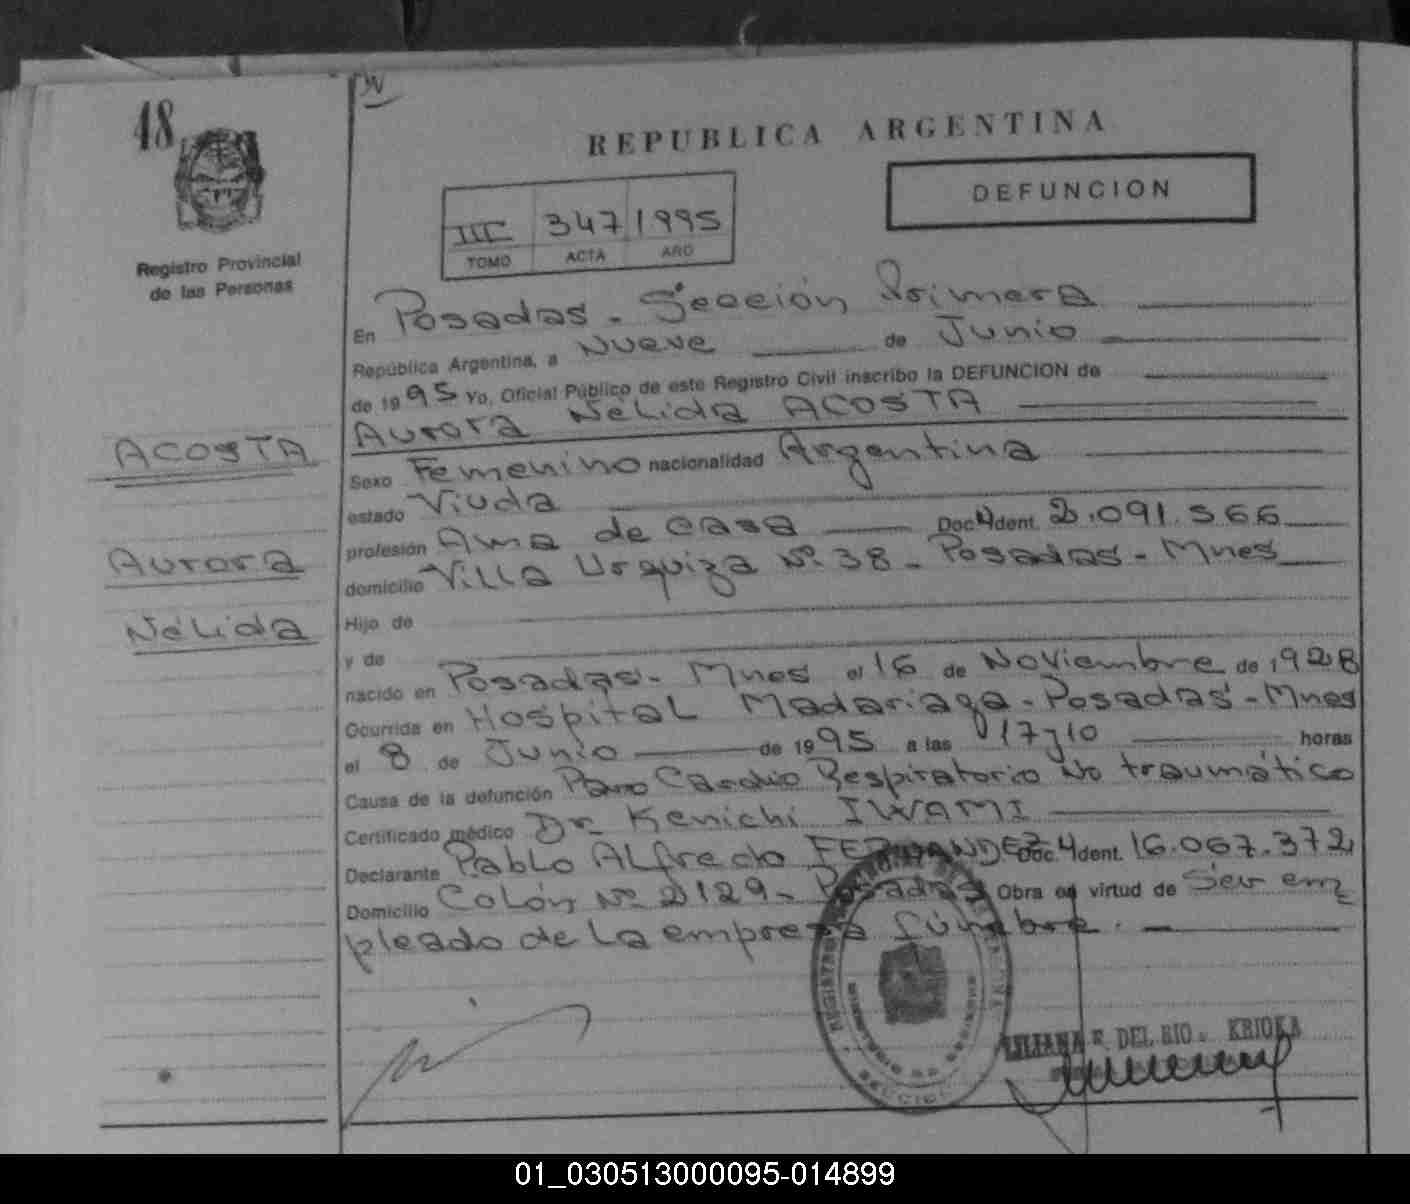 48
REPUBLICA ARGENTINA
DEFUNCION
III 347 1995
TOMO ACTA AÑO
Registro Provincial
de las Personas
ACOSTA
Aurora
Nélida
En Posadas - Sección Primera
República Argentina, a Nueve de Junio
de 1995 Yo, Oficial Público de este Registro Civil inscribo la DEFUNCION de
Aurora Nélida ACOSTA
Sexo Femenino nacionalidad Argentina
estado Viuda
profesión Ama de casa Doc. Ident. 2.091.566
domicilio Villa Urquiza Nº 38 - Posadas - Mnes
Hijo de
y de
nacido en Posadas - Mnes el 16 de Noviembre de 1928
Ocurrida en Hospital Madariaga - Posadas - Mnes
el 8 de Junio de 1995 a las 17y10 horas
Causa de la defunción Paro Cardio Respiratorio No traumático
Certificado médico Dr. Kenichi IWAMI
Declarante Pablo Alfredo FERNANDEZ Doc. Ident. 16.067.372
Domicilio Colón Nº 2129 - Posadas Obra en virtud de Ser em
pleado de la empresa fúnebre.
LILIANA R. DEL RIO KRIOKA
01_030513000095-014899